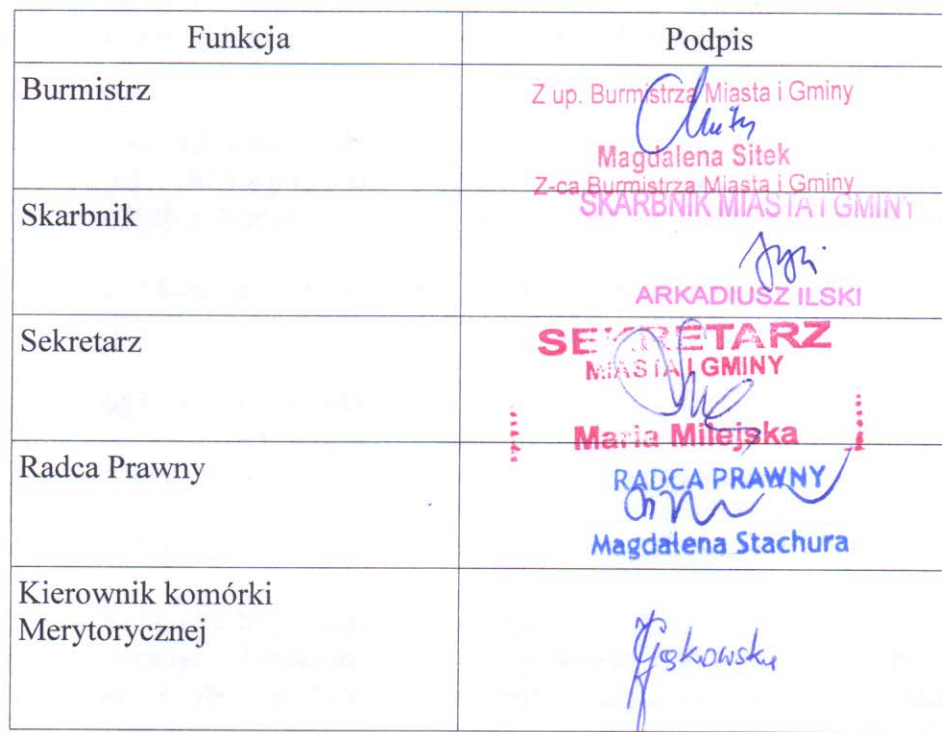 Funkcja
Podpis
Burmistrz
Z up. Burmistrza Miasta i Gminy
Magdalena Sitek
Z-ca Burmistrza Miasta i Gminy
Skarbnik
SKARBNIK MIASTA I GMINY
ARKADIUSZ ILSKI
Sekretarz
SEKRETARZ
MIASTA I GMINY
Maria Milejska
Radca Prawny
RADCA PRAWNY
Magdalena Stachura
Kierownik komórki
Merytorycznej